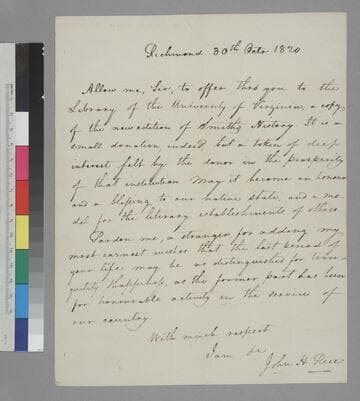 Richmond 30th Octr 1820
Allow me, Sir, to offer thro you to the
Library of the University of Virginia, a copy
of the new edition of Smith's History. It is a
small donation, indeed, but a token of deep
interest felt by the donor in the prosperity
of that institution May it become an honour
and a blessing to our native state, and a mo-
del for the literary establishments of others
Pardon me, a stranger for adding my
most earnest wishes that the last period of
your life may be as distinguished for tran-
quility & happiness, as the former part has been
for honourable activity in the service of
our country.
With much respect
I am &c
John H. Rice